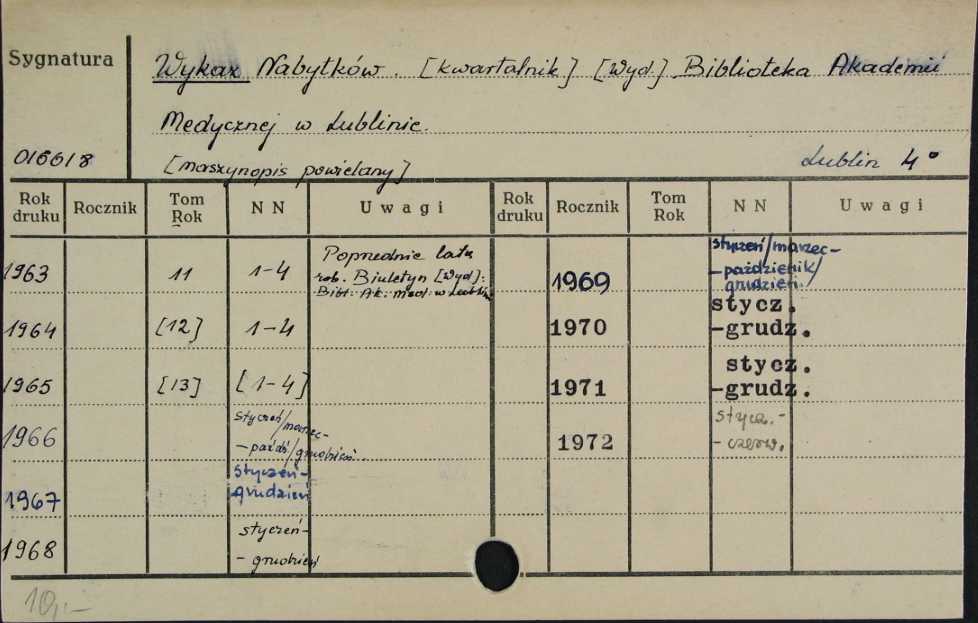 Sygnatura
Wykaz Nabytków. [kwartalnik] [Wyd.] Biblioteka Akademii
Medycznej w Lublinie.
016618
[maszynopis powielany]
Lublin 4°
Rok druku Rocznik Tom Rok NN Uwagi Rok druku Rocznik Tom Rok NN Uwagi
1963 11 1-4
Poprzednie lata
zob. Biuletyn [Wyd]:
Bibl. Ak. Med. w Lublin
1964 [12] 1-4
1965 [13] [1-4]
1966
styczeń/marzec-
-paźdź/grudzień.
1967
styczeń-
grudzień
1968
styczeń-
- grudzień
1969
styczeń/marzec-
-październik/
grudzień.
1970
stycz.
-grudz.
1971
stycz.
-grudz.
1972
stycz.-
- czerw.
10,-